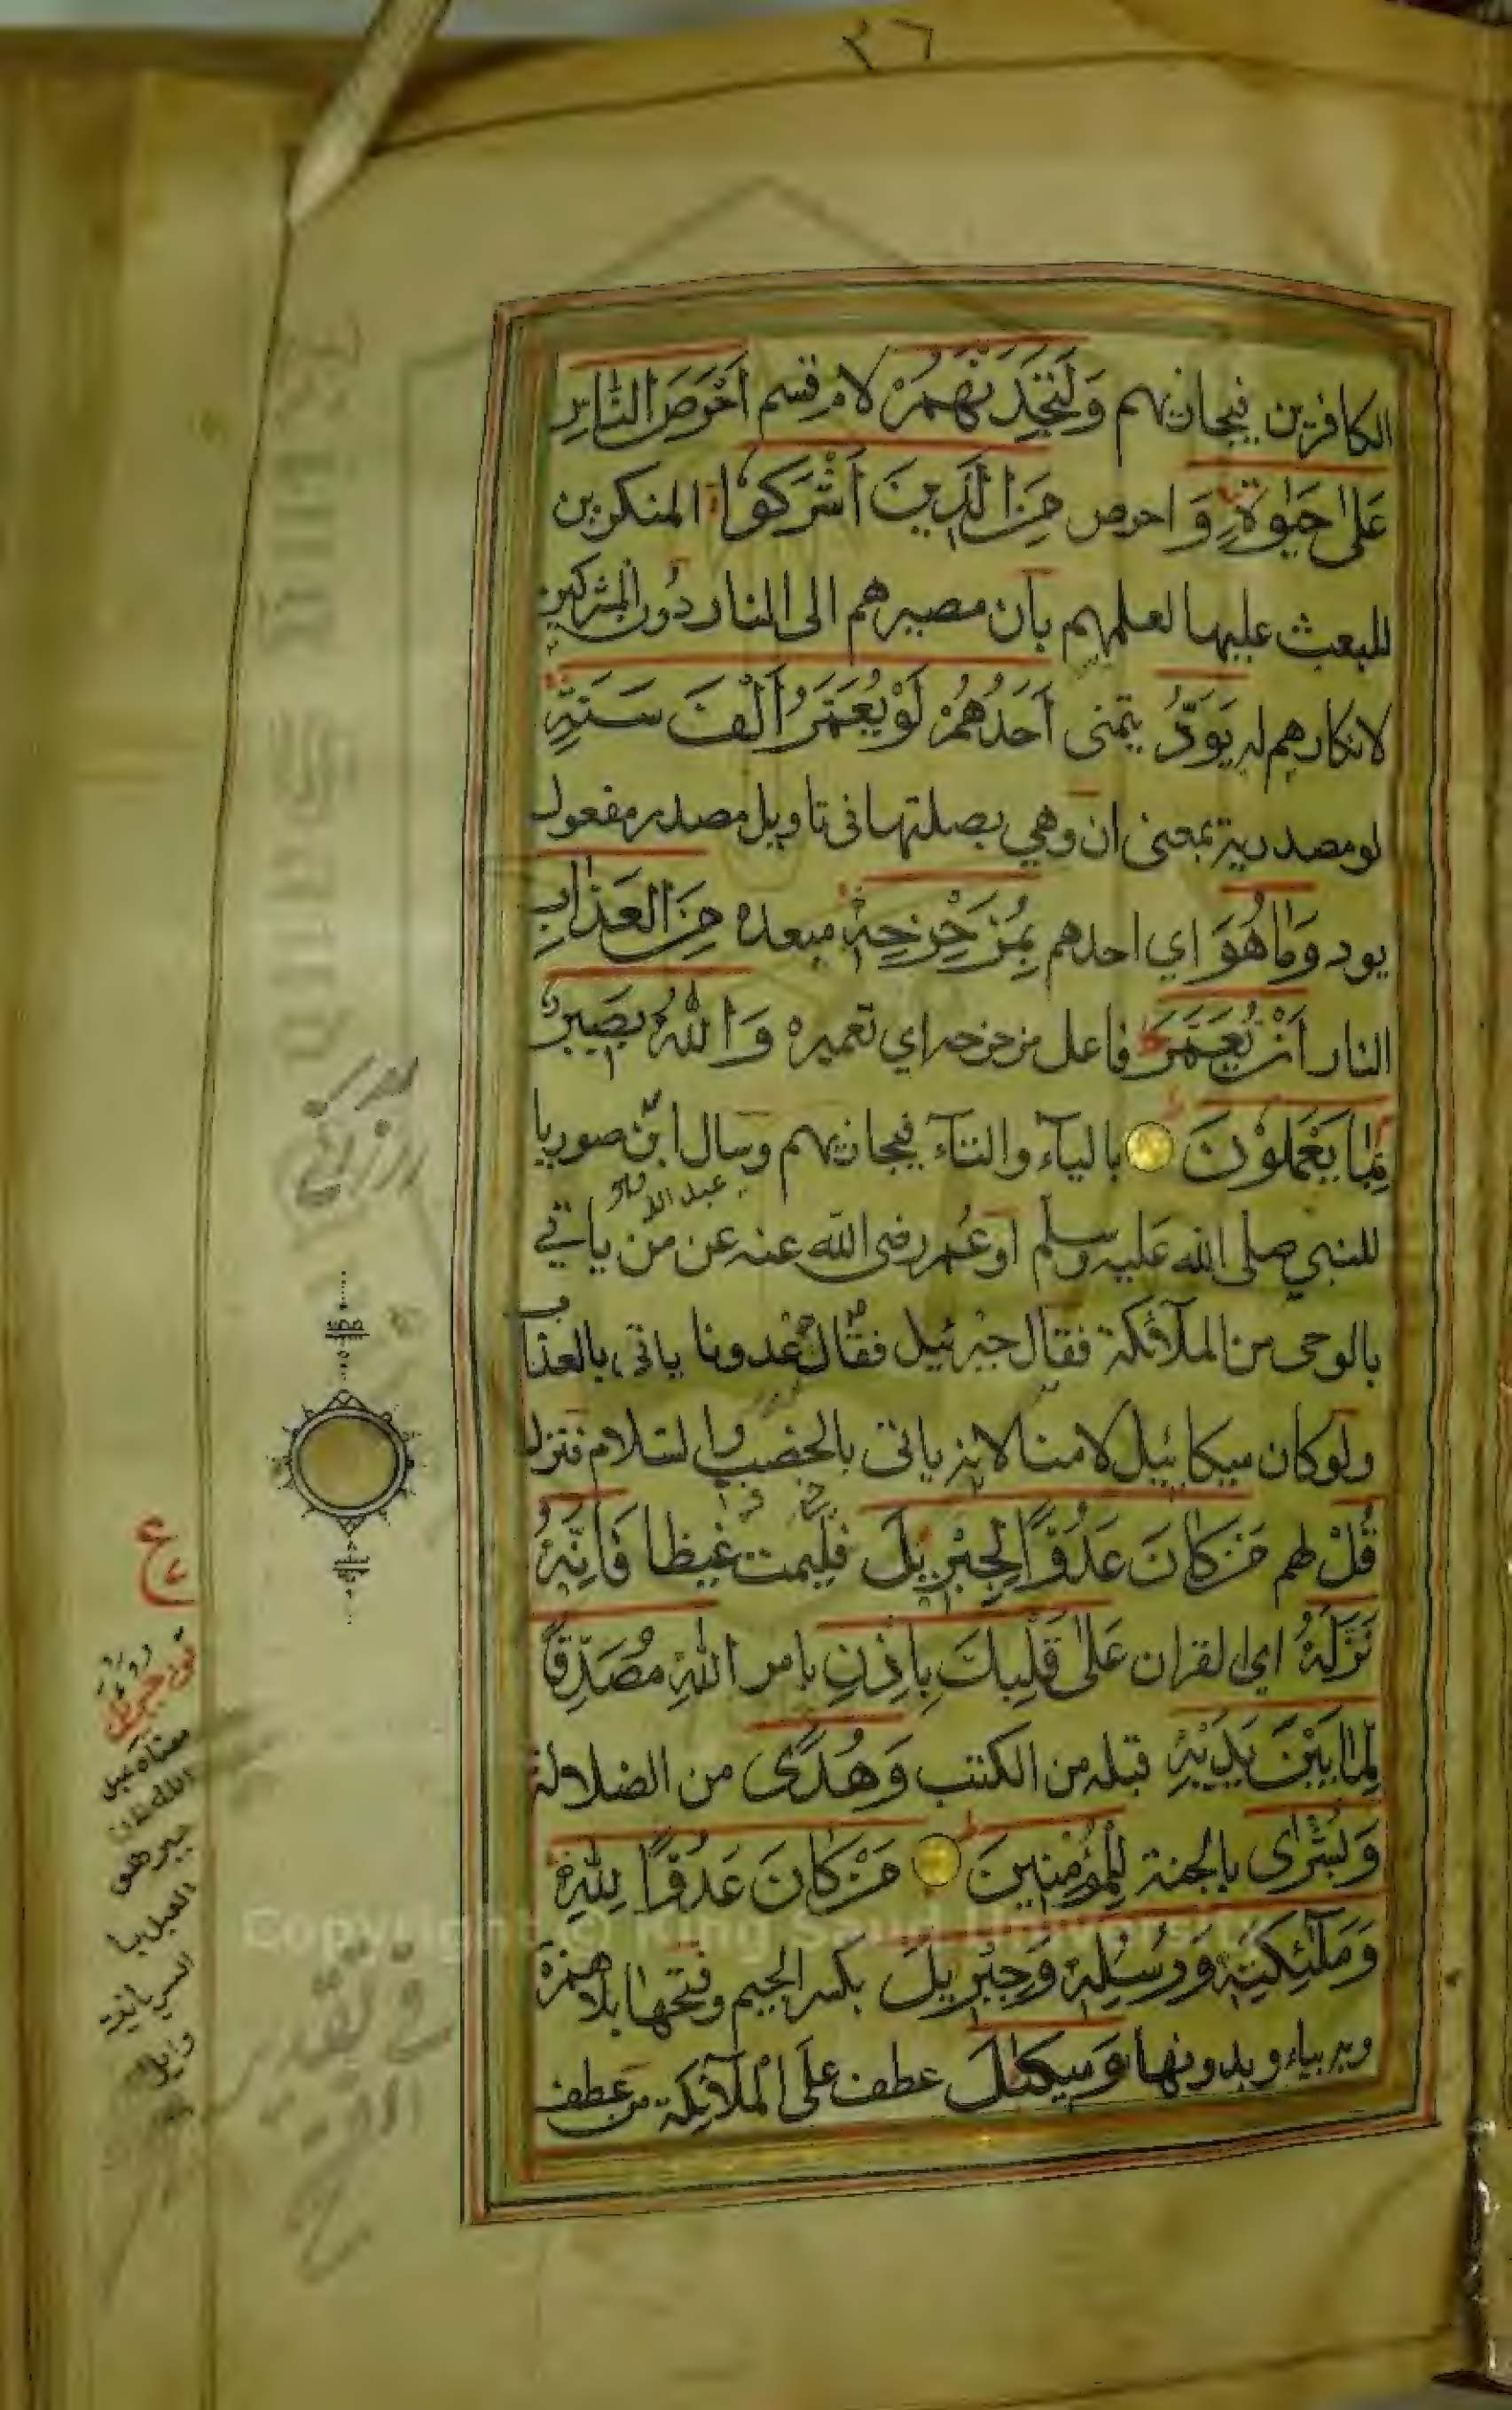 ٣٦
الكافرين فيجازيهم وَلَتَجِدَنَّهُمْ لام قسم اَحْرَصَ النَّاسِ
عَلٰى حَيٰوةٍ وَ احرص مِنَ الَّذِينَ اَشْرَكُوْا المنكرين
للبعث عليها لعلمهم بأن مصيرهم الى النار دون المشركين
لانكارهم له يَوَدُّ يتمنى اَحَدُهُمْ لَوْ يُعَمَّرُ اَلْفَ سَنَةٍ
لو مصدرية بمعنى ان وهي بصلتها في تاويل مصدر مفعول
يود وَمَا هُوَ اي احدهم بِمُزَحْزِحِهٖ مبعده مِنَ الْعَذَابِ
النار اَنْ يُعَمَّرَ فاعل مزحزحه اي تعميره وَاللّٰهُ بَصِيرٌ
بِمَا يَعْمَلُوْنَ بالياء والتاء فيجازيهم وسال ابن صوريا
عبد الله
للنبي صلى الله عليه وسلم او عمر رضى الله عنه عن من ياتي
بالوحى من الملآئكة فقال جبرئيل فقال عدونا ياتى بالعذاب
ولو كان ميكائيل لامنا لانه ياتى بالخصب والسلام فنزل
قُلْ لهم مَنْ كَانَ عَدُوًّا لِجِبْرِيلَ فليمت غيظا فَاِنَّهُ
نَزَّلَهُ اي القران عَلٰى قَلْبِكَ بِاِذْنِ بامر اللّٰهِ مُصَدِّقًا
لِمَا بَيْنَ يَدَيْهِ قبله من الكتب وَهُدًى من الضلالة
وَبُشْرٰى بالجنة لِلْمُؤْمِنِينَ مَنْ كَانَ عَدُوًّا لِلّٰهِ
وَمَلٰٓئِكَتِهٖ وَرُسُلِهٖ وَجِبْرِيلَ بكسر الجيم وفتحها بلا همزة
وبه بياء وبدونها وَمِيكٰىلَ عطف على الملآئكة من عطف
ع
معناه عبد
الله فان
جبر هو
العبد با
السريانية
وايل
Copyright © King Saud University
King Saud